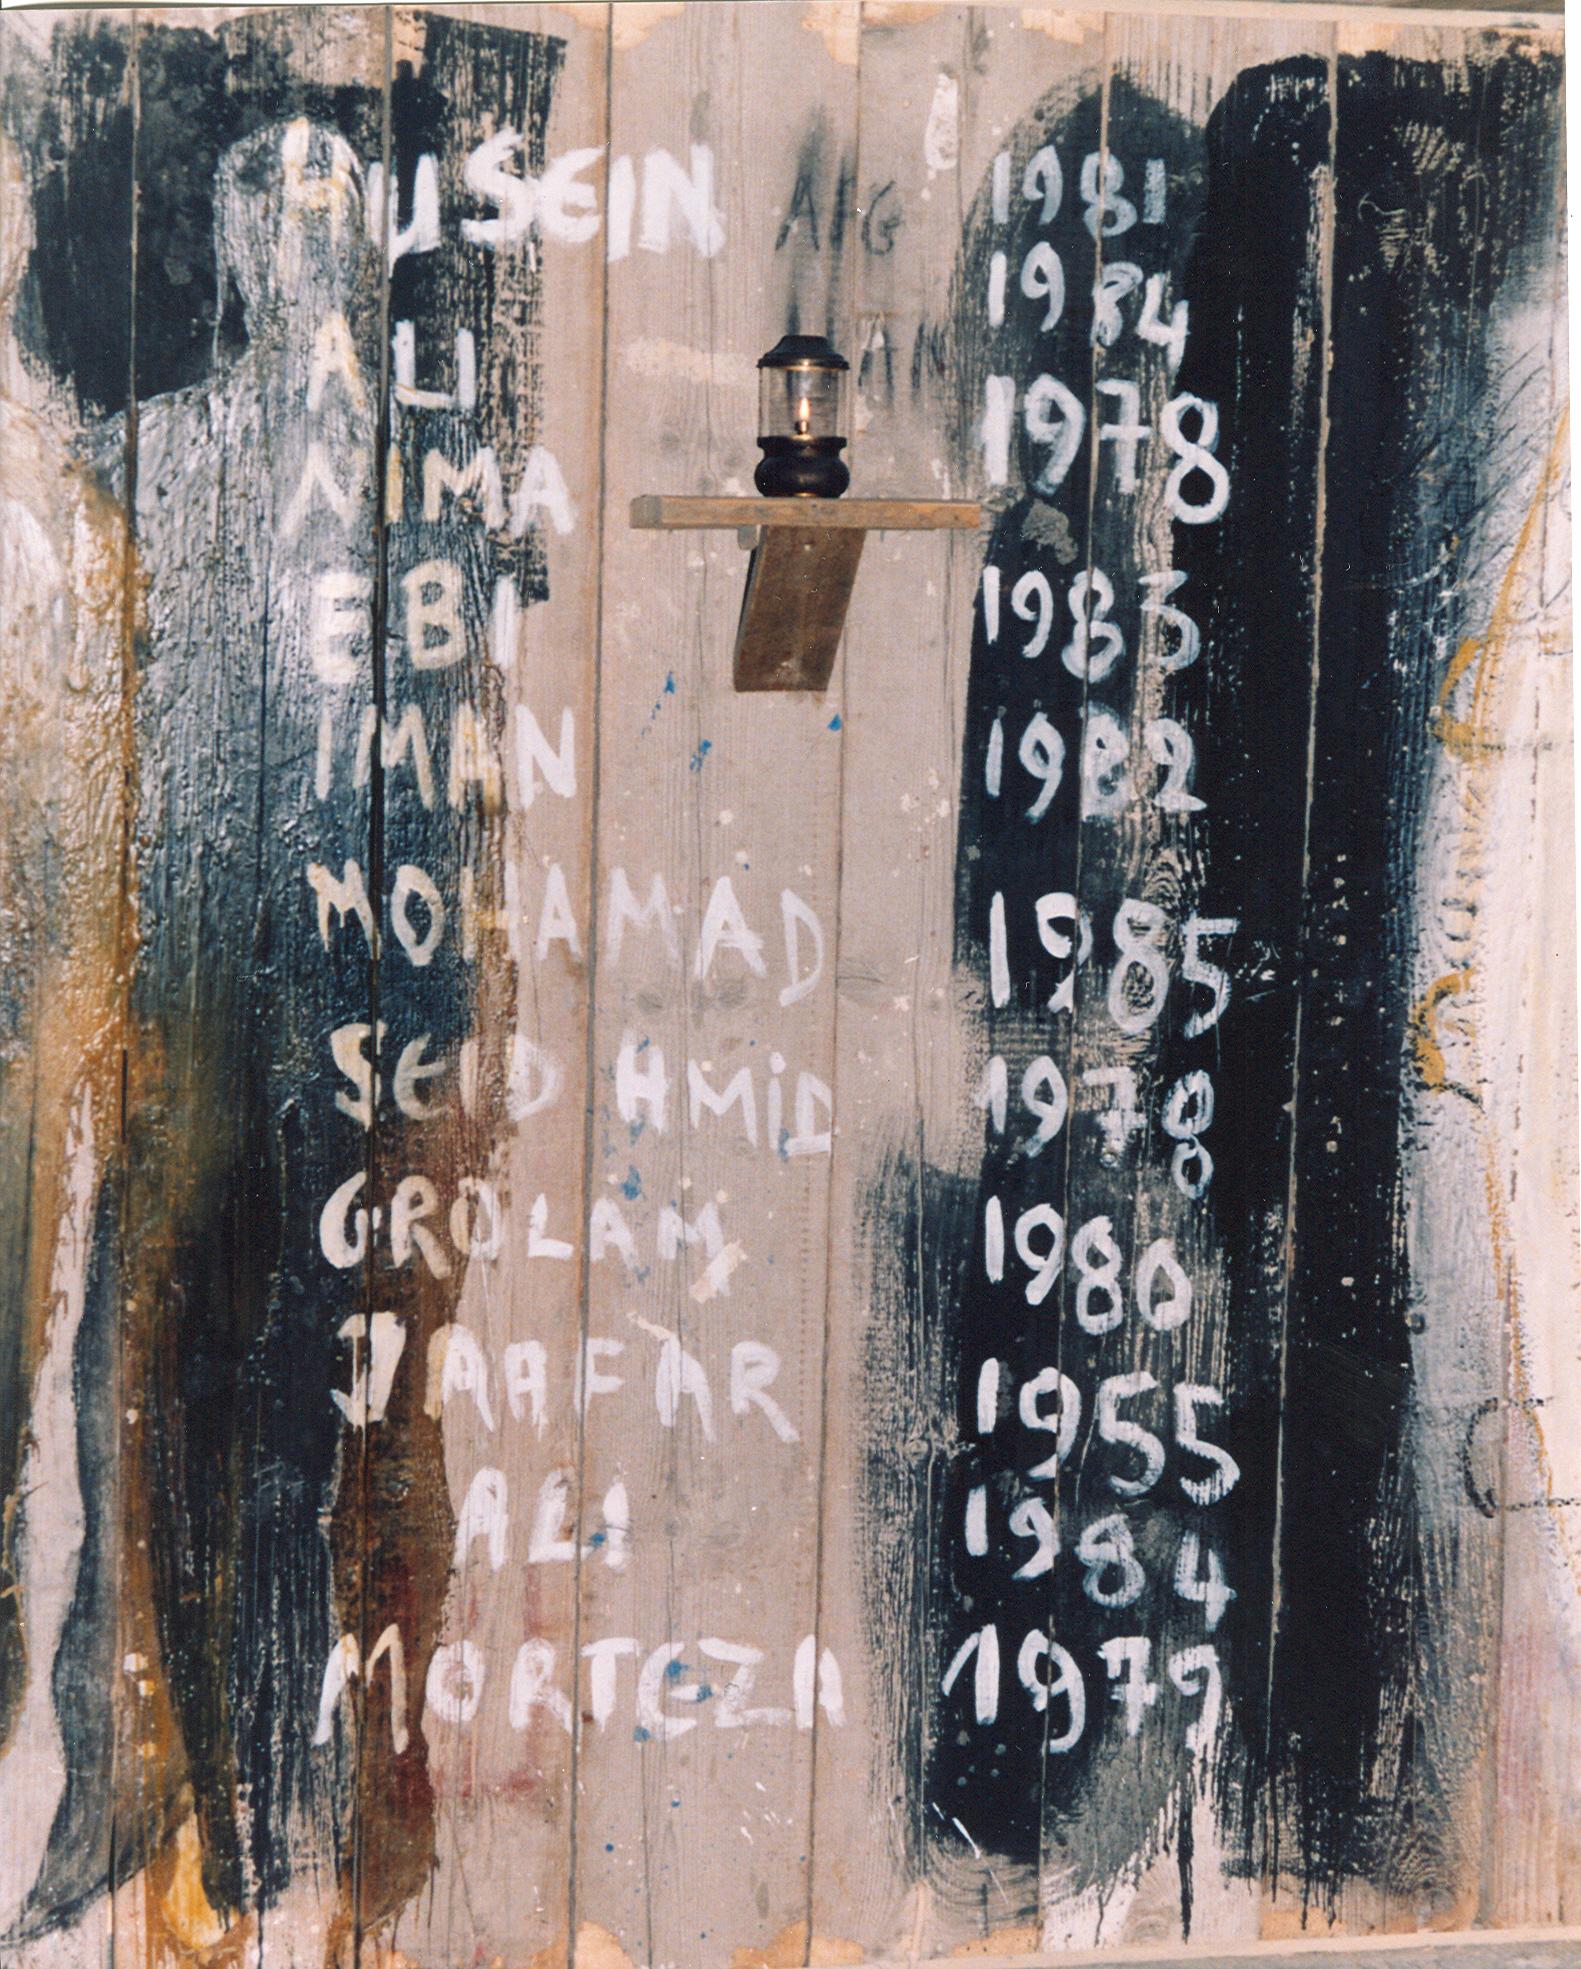 HUSEIN AFG 1981
ALI 1984
NIMA 1978
EBI 1983
IMAN 1982
MOHAMAD 1985
SEID HMiD 1978
GROLAM 1980
JAAFAR 1955
ALI 1984
MORTEZA 1979